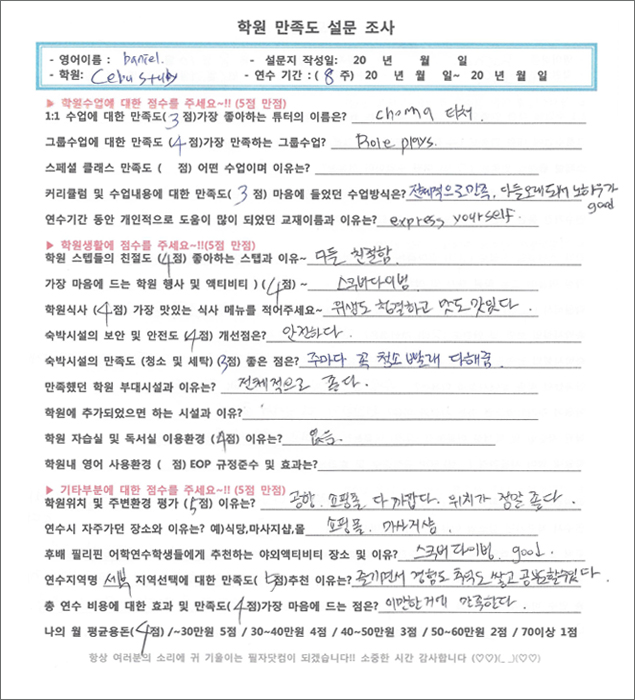 학원 만족도 설문 조사
- 영어이름 : Daniel. - 설문지 작성일: 20 년 월 일
- 학원: Cebu study - 연수 기간 : ( 8 주) 20 년 월 일~ 20 년 월 일
▶ 학원수업에 대한 점수를 주세요~!! (5점 만점)
1:1 수업에 대한 만족도( 3 점)가장 좋아하는 튜터의 이름은? 티처.
그룹수업에 대한 만족도( 4 점)가장 만족하는 그룹수업? Role plays.
스페셜 클래스 만족도 ( 점) 어떤 수업이며 이유는?
커리큘럼 및 수업내용에 대한 만족도( 3 점) 마음에 들었던 수업방식은? 전체적으로만족. 다들오래되서 노하우가 good
연수기간 동안 개인적으로 도움이 많이 되었던 교재이름과 이유는? express yourself.
▶ 학원생활에 점수를 주세요~!!(5점 만점)
학원 스텝들의 친절도 (4점) 좋아하는 스탭과 이유~ 다들 친절함.
가장 마음에 드는 학원 행사 및 액티비티 ) (4점) ~ 스쿠버다이빙
학원식사 (4점) 가장 맛있는 식사 메뉴를 적어주세요~ 위생도 청결하고 맛도 맛있다.
숙박시설의 보안 및 안전도 (4점) 개선점은? 안전하다.
숙박시설의 만족도 (청소 및 세탁) (3점) 좋은 점은? 주마다 꼭 청소 빨래 다해줌
만족했던 학원 부대시설과 이유는? 전체적으로 좋다.
학원에 추가되었으면 하는 시설과 이유?
학원 자습실 및 독서실 이용환경 (4점) 이유는? 없음.
학원내 영어 사용환경 ( 점) EOP 규정준수 및 효과는?
▶ 기타부분에 대한 점수를 주세요~!! (5점 만점)
학원위치 및 주변환경 평가 (5점) 이유는? 공항. 쇼핑몰 다 가깝다. 위치가 정말 좋다.
연수시 자주가던 장소와 이유는? 예)식당,마사지샵,몰 쇼핑몰. 마사지샵.
후배 필리핀 어학연수학생들에게 추천하는 야외액티비티 장소 및 이유? 스쿠버다이빙. good.
연수지역명 세부 지역선택에 대한 만족도( 5점)추천 이유는? 즐기면서 경험도 추억도 쌓고 공부할수있다.
총 연수 비용에 대한 효과 및 만족도(4점)가장 마음에 드는 점은? 이만한거에 만족한다.
나의 월 평균용돈(4점) /~30만원 5점 / 30~40만원 4점 / 40~50만원 3점 / 50~60만원 2점 / 70이상 1점
항상 여러분의 소리에 귀 기울이는 필자닷컴이 되겠습니다!! 소중한 시간 감사합니다 (♡♡)(_ _)(♡♡)